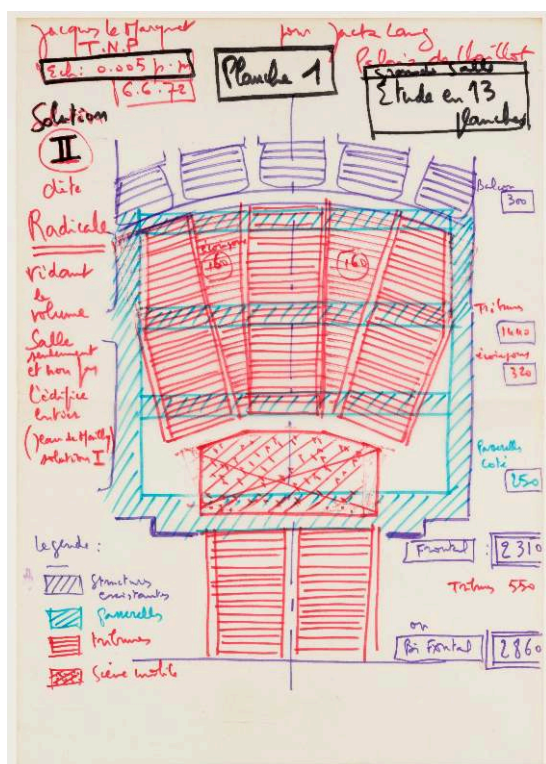 Jacques le Marquet
T.N.P
Ech: 0.005 p.m
6.6.72
pour Jack Lang
Planche 1
Palais de Chaillot
Grande Salle
Etude en 13
planches
Solution
II
dite
Radicale
vidant
le
volume
Salle
seulement
et non pas
l'édifice
entier
(Jean de Mailly)
solution I
écoinçons
160
160
Balcon
300
Tribunes
1440
écoinçons
320
Passerelles
coté
250
Frontal : 2310
Tribunes 550
ou
Bi Frontal 2860
légende :
Structures
existantes
passerelles
tribunes
Scène mobile